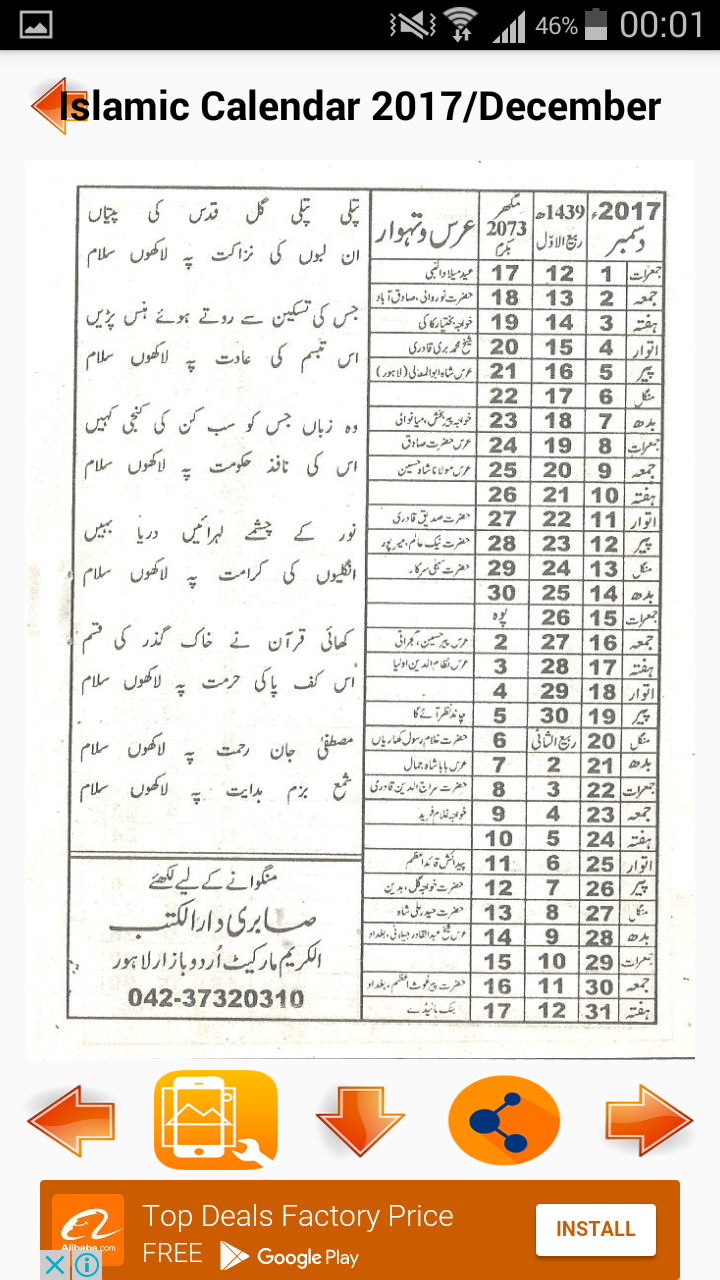 46% 00:01
Islamic Calendar 2017/December
پتلی پتلی گل قدس کی پتیاں
ان لبوں کی نزاکت پہ لاکھوں سلام
جس کی تسکین سے روتے ہوئے ہنس پڑیں
اس تبسم کی عادت پہ لاکھوں سلام
وہ زباں جس کو سب کن کی کنجی کہیں
اس کی نافذ حکومت پہ لاکھوں سلام
نور کے چشمے لہرائیں دریا بہیں
انگلیوں کی کرامت پہ لاکھوں سلام
کھائی قرآن نے خاک گذر کی قسم
اس کف پا کی حرمت پہ لاکھوں سلام
مصطفیٰ جان رحمت پہ لاکھوں سلام
شمع بزم ہدایت پہ لاکھوں سلام
منگوانے کے لیے لکھئے
صابری دارالکتب
الکریم مارکیٹ اُردو بازار لاہور
042-37320310
2017ء دسمبر 1439ھ ربیع الاوّل مگھر 2073 بکرم عرس و تہوار
جمعرات 1 12 17 عید میلاد النبی
جمعہ 2 13 18 حضرت نور والی، صادق آباد
ہفتہ 3 14 19 خواجہ بختیار کاکی
اتوار 4 15 20 شیخ محمد بری قادری
پیر 5 16 21 عرس شاہ ابوالمعالی (لاہور)
منگل 6 17 22
بدھ 7 18 23 خواجہ پیر بخش، میانوالی
جمعرات 8 19 24 عرس حضرت صادق
جمعہ 9 20 25 عرس مولانا شاہ حسین
ہفتہ 10 21 26
اتوار 11 22 27 حضرت صدیق قادری
پیر 12 23 28 حضرت نیک عالم، میرپور
منگل 13 24 29 حضرت سخی سرکار
بدھ 14 25 30
جمعرات 15 26 پوہ
جمعہ 16 27 2 عرس پیر حسین، گجراتی
ہفتہ 17 28 3 عرس نظام الدین اولیا
اتوار 18 29 4
پیر 19 30 5 چاند نظر آئے گا
منگل 20 ربیع الثانی 6 حضرت غلام رسول کھاریاں
بدھ 21 2 7 عرس بابا شاہ جمال
جمعرات 22 3 8 حضرت سراج الدین قادری
جمعہ 23 4 9 خواجہ غلام فرید
ہفتہ 24 5 10
اتوار 25 6 11 پیدائش قائد اعظم
پیر 26 7 12 حضرت خواجہ گل، بدین
منگل 27 8 13 حضرت حیدر علی شاہ
بدھ 28 9 14 عرس شیخ عبدالقادر جیلانی، بغداد
جمعرات 29 10 15
جمعہ 30 11 16 حضرت پیر غوث اعظم، بغداد
ہفتہ 31 12 17 بنک ہالیڈے
Alibaba.com
Top Deals Factory Price
FREE Google Play
INSTALL